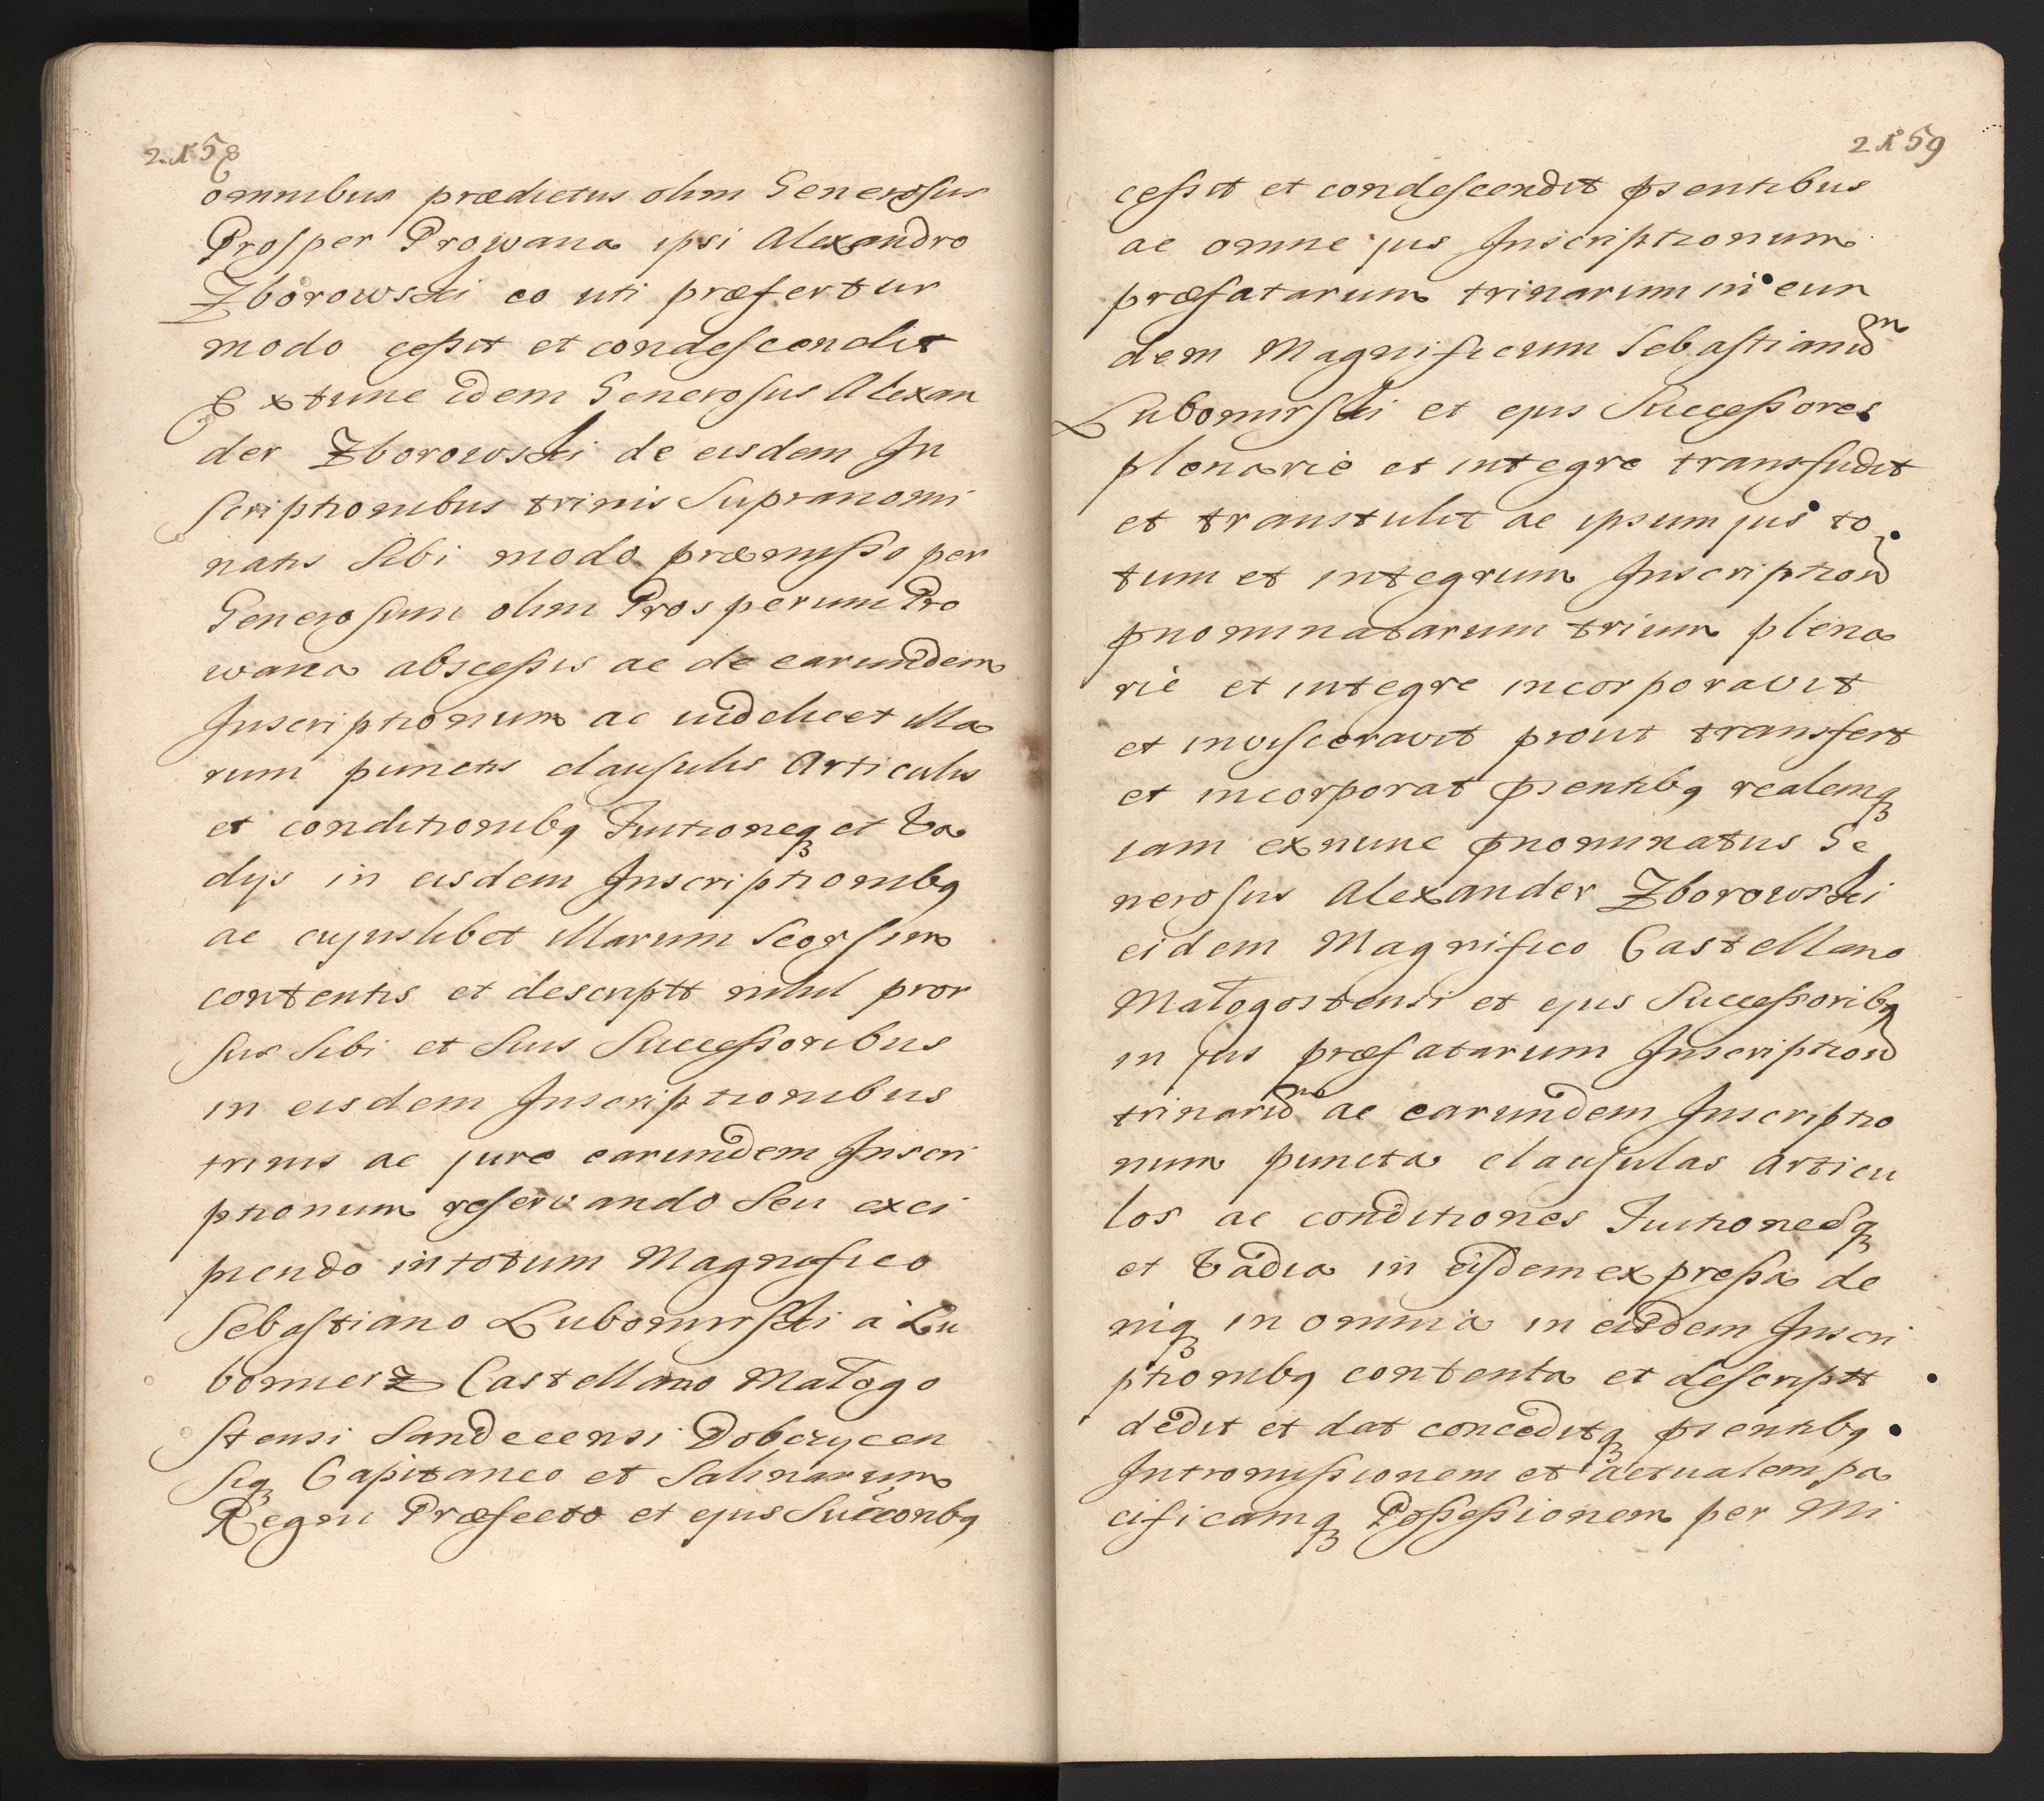 2158
omnibus prædictus olim Generosus
Prosper Prowana ipsi Alexandro
Zborowski eo uti præfertur
modo cessit et condescendit
Extunc idem Generosus Alexan
der Zborowski de eisdem In
scriptionibus trinis Supranomi
natis Sibi modo præmisso per
Generosum olim Prosperum Pro
wana abscessis ac de earundem
Inscriptionum ac videlicet illa
rum punctis clausulis Articulis
et conditionibq Tuitioneq et Va
dijs in eisdem Inscriptionibq
ac cujuslibet illarum Seorsim
contentis et descriptt nihil pror
sus Sibi et Suis Successoribus
in eisdem Inscriptionibus
trinis ac jure earundem Inscri
ptionum reservando Seu exci
piendo in totum Magnifico
Sebastiano Lubomirski à Lu
bomierz Castellano Małogo
stensi Sandecensi Dobczycen
Siq Capitaneo et Salinarum
Regni Præfecto et ejus Succonbq
2159
cessit et condescendit psentibus
ac omne jus Inscriptionum
præfatarum trinarum in eun
dem Magnificum Sebastianum
Lubomirski et ejus Successores
plenarie et integre transfudit
et transtulit ac ipsum jus to
tum et integrum Inscription
pnominatarum trium plena
rie et integre incorporavit
et invisceravit prout transfert
et incorporat psentibq realemq
iam exnunc pnominatus Ge
nerosus Alexander Zborowski
eidem Magnifico Castellano
Małogostensi et ejus Successoribq
in jus præfatarum Inscription
trinarum ac earundem Inscriptio
num puncta clausulas Articu
los ac conditiones Tuitionesq
et Vadia in eisdem expressa de
niq in omnia in eisdem Inscri
ptionibq contenta et descriptt
dedit et dat conceditq psentibq
Intromissionem et actualem pa
cificamq Possessionem per Mi